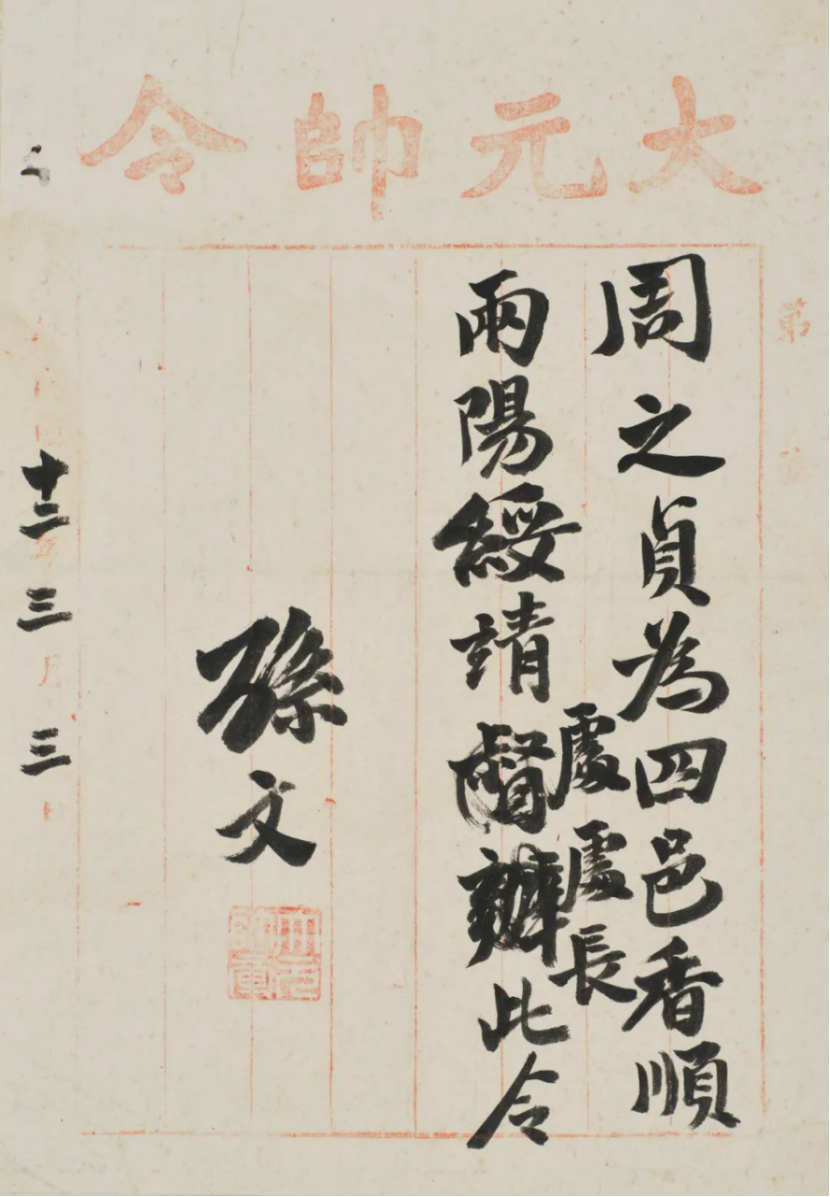 大元帥令
第
周之貞為四邑香順
處處長
兩陽綏靖督辦此令
孫文
十三 三月三